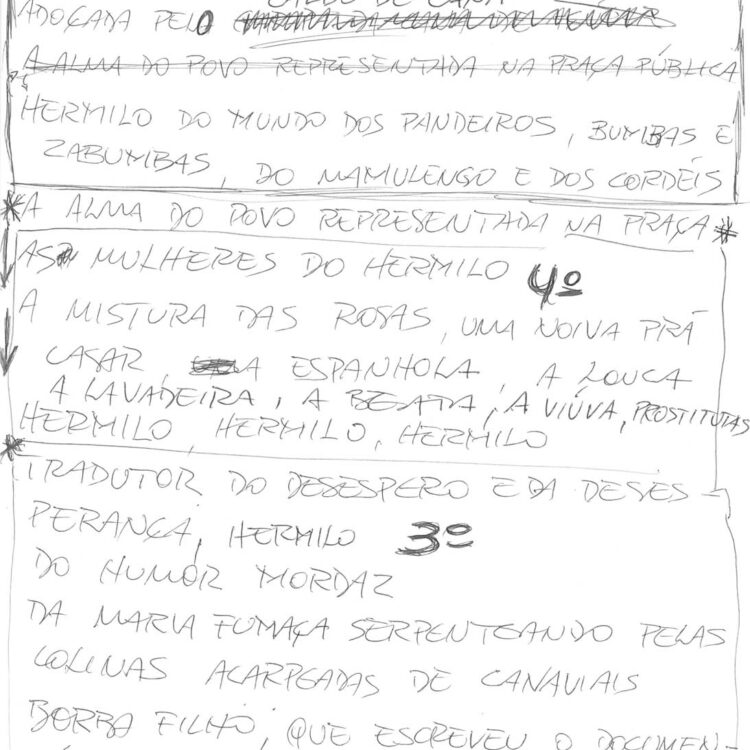 CALDO DE CANA
ADOÇADA PELO
A ALMA DO POVO REPRESENTADA NA PRAÇA PÚBLICA
HERMILO DO MUNDO DOS PANDEIROS, BUMBAS E
ZABUMBAS, DO MAMULENGO E DOS CORDÉIS
*A ALMA DO POVO REPRESENTADA NA PRAÇA*
AS MULHERES DO HERMILO 4º
A MISTURA DAS ROSAS, UMA NOIVA PRÁ
CASAR, A ESPANHOLA, A LOUCA
A LAVADEIRA, A BEATA, A VIÚVA, PROSTITUTAS
HERMILO, HERMILO, HERMILO
*TRADUTOR DO DESESPERO E DA DESES-
PERANÇA, HERMILO 3º
DO HUMOR MORDAZ
DA MARIA FUMAÇA SERPENTEANDO PELAS
COLINAS ACARPEADAS DE CANAVIAIS
BORBA FILHO, QUE ESCREVEU O DOCUMEN-